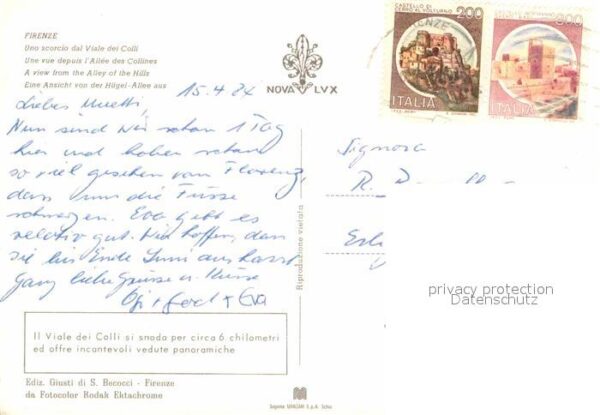 FIRENZE
Uno scorcio dal Viale dei Colli
Une vue depuis l'Allée des Collines
A view from the Alley of the Hills
Eine Ansicht von der Hügel-Allee aus
NOVA LVX
15.4.84
Liebes Muetti,
Nun sind wir schon 1 Tag
hier und haben schon
so viel gesehen von Florenz,
dass uns die Füsse
schmerzen. Eva geht es
relativ gut. Wir hoffen, dass
sie bis Ende Juni
Ganz liebe Grüsse u. Küsse
+ Eva
Il Viale dei Colli si snoda per circa 6 chilometri
ed offre incantevoli vedute panoramiche
Ediz. Giusti di S. Becocci - Firenze
da Fotocolor Kodak Ektachrome
Riproduzione vietata
CASTELLO DI
CERRO AL VOLTURNO
200
ITALIA
FIRENZE
200
ITALIA
Signora
R. D
privacy protection
Datenschutz